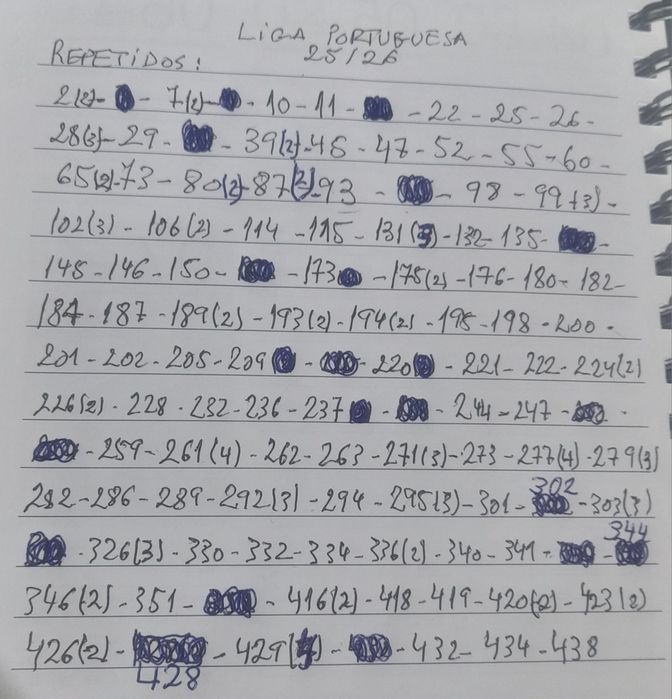 LIGA PORTUGUESA
REPETIDOS: 25/26
2(2)- - 7(2)- - 10 - 11 - - 22 - 25 - 26 -
28(3)- 29 - - 39(2)- 46 - 47 - 52 - 55 - 60 -
65(2)-73 - 80(2)- 87(2)-93 - - 98 - 99(3) -
102(3) - 106(2) - 114 - 115 - 131(3)-132- 135- -
145 - 146 - 150 - - 173 - 175(2) -176- 180- 182-
184 - 187 - 189(2) - 193(2) - 194(2) - 195 - 198 - 200 -
201 - 202 - 205 - 209 - - 220 - 221 - 222 - 224(2)
226(2) - 228 - 232 - 236 - 237 - - 244 - 247 - -
- 259 - 261(4) - 262 - 263 - 271(3) - 273 - 277(4) - 279(3)
282 - 286 - 289 - 292(3) - 294 - 295(3) - 301 - 302 - 303(3)
- 326(3) - 330 - 332 - 334 - 336(2) - 340 - 341 - - 344
346(2) - 351 - - 416(2) - 418 - 419 - 420(2) - 423(2)
426(2) - 428 - 429( ) - - 432 - 434 - 438